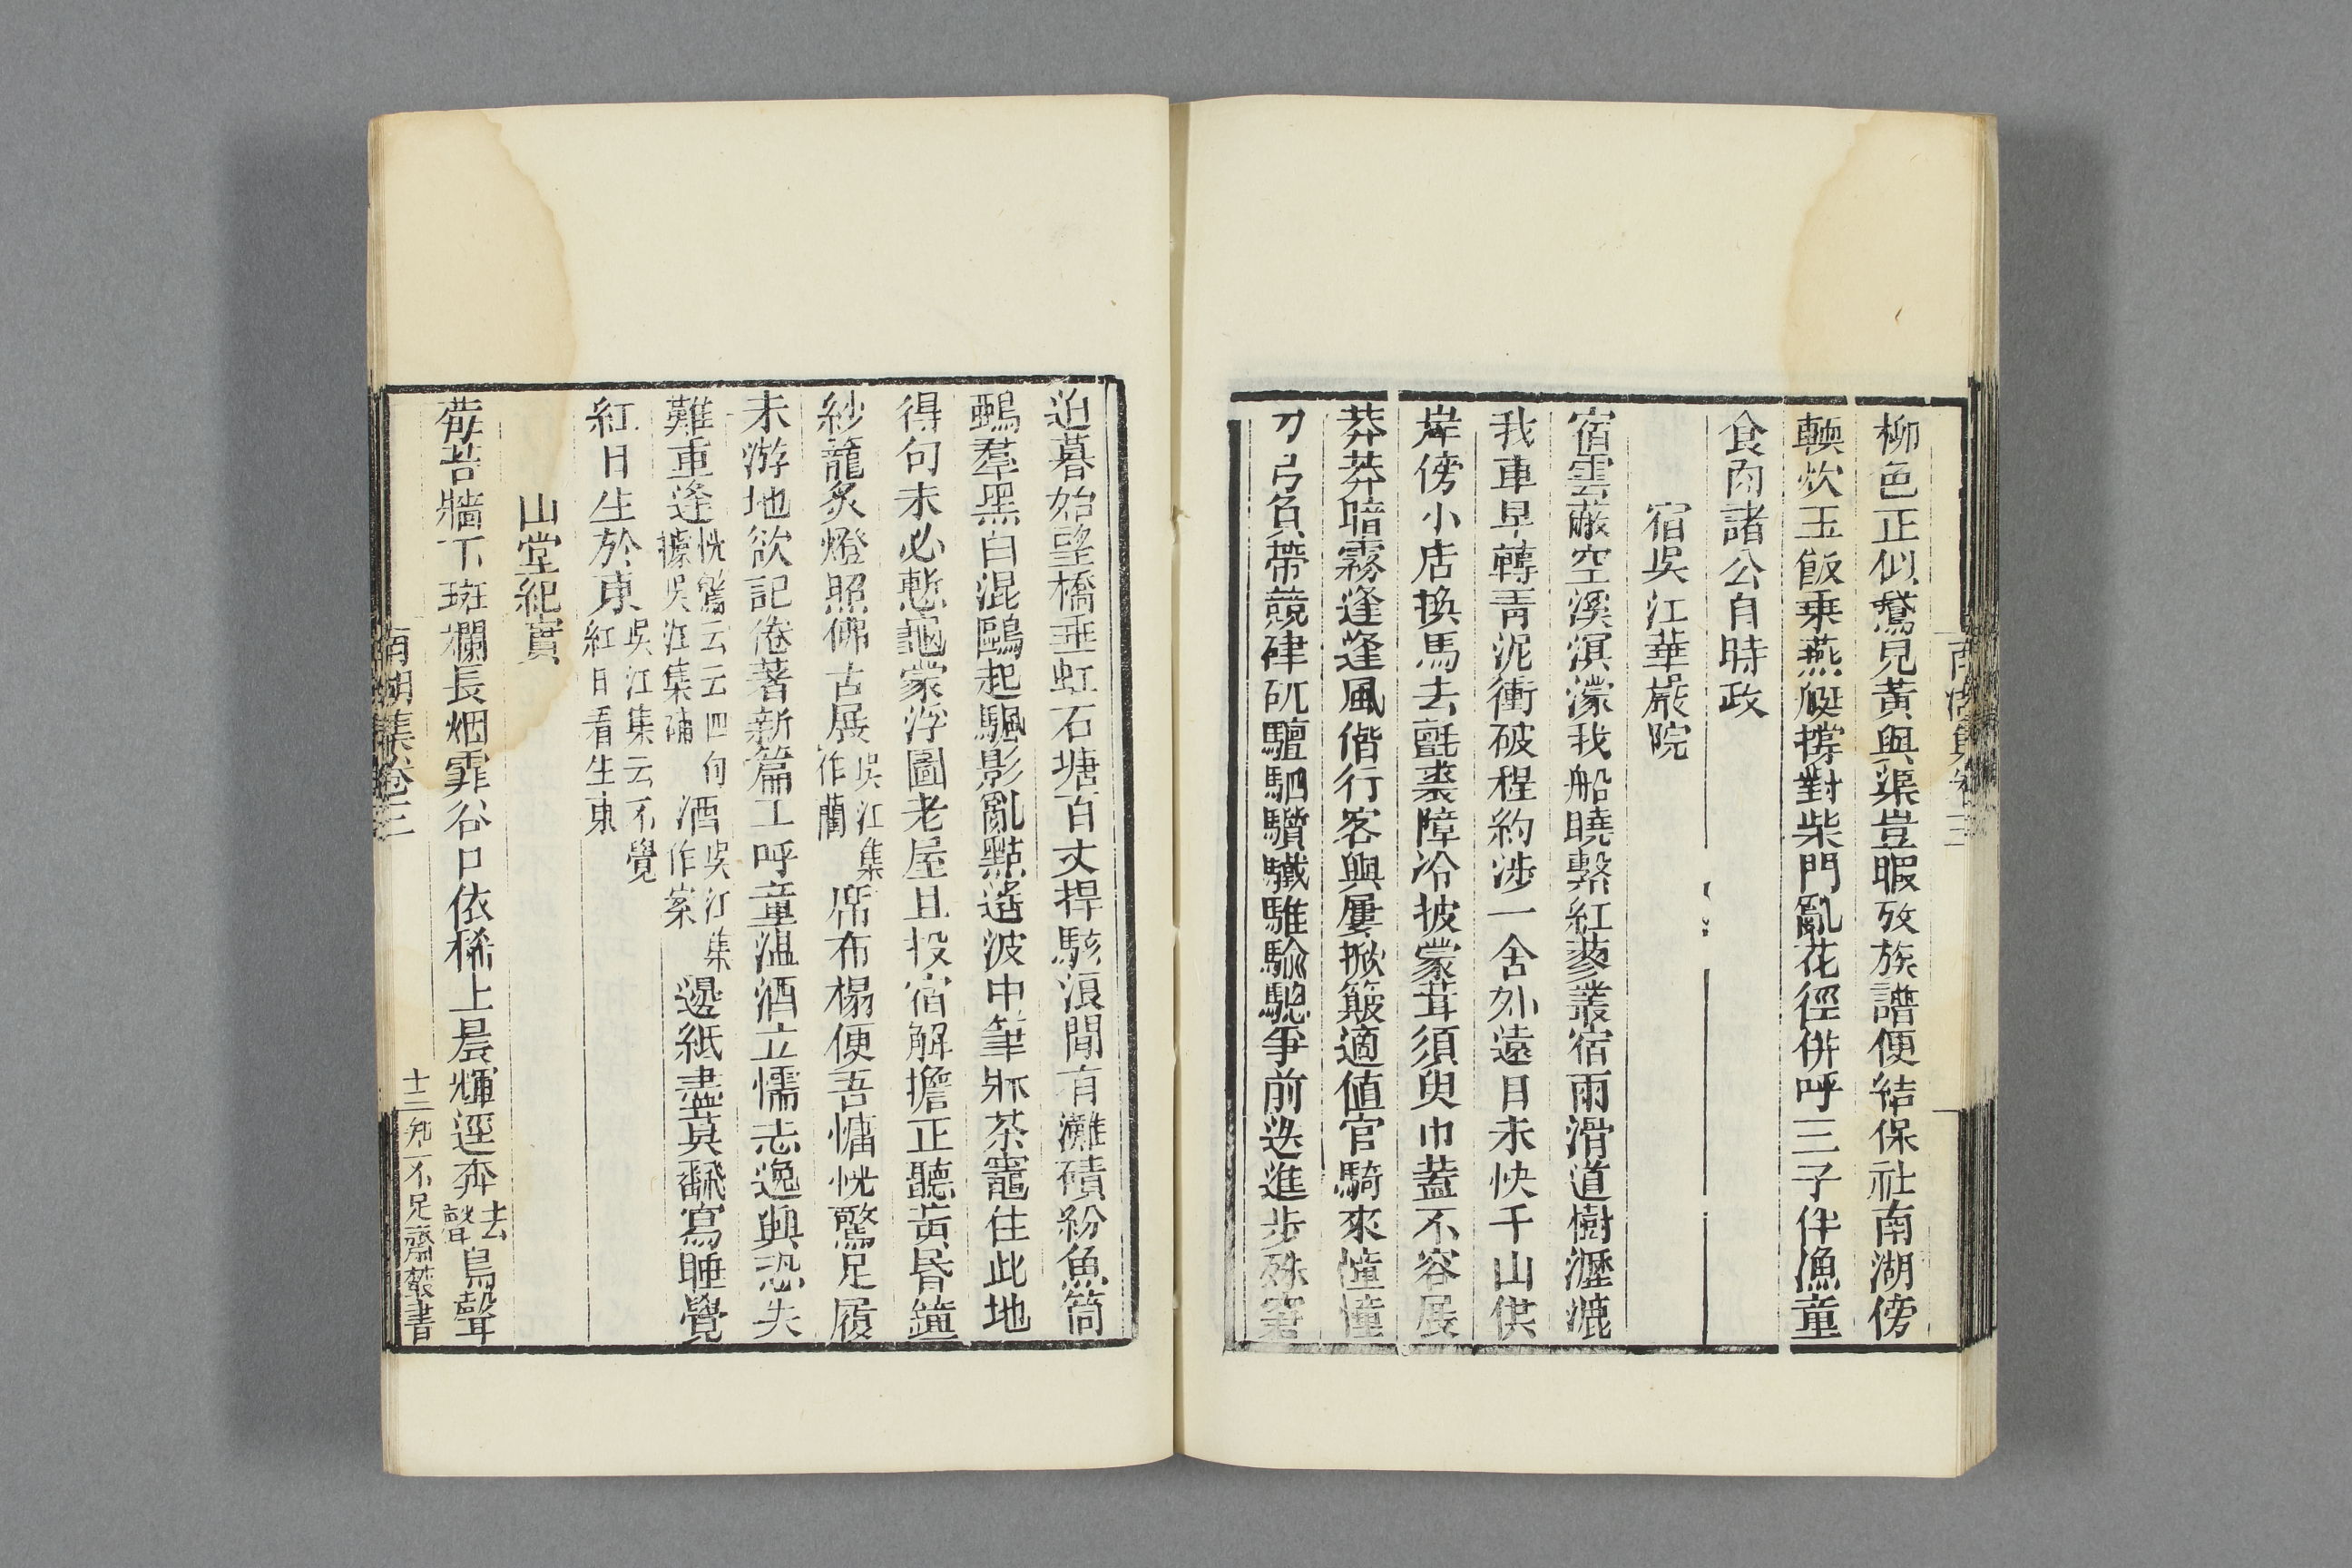 柳色正似鵞兒黃與渠豈暇攷族譜便結保社南湖傍
輭炊玉飯乗燕艇撐對柴門亂花徑併呼三子伴漁童
食肉諸公自時政
宿吳江華嚴院
宿雲蔽空溪溟濛我船曉繫紅蓼叢宿雨滑道樹瀝漉
我車早轉靑泥衝破程約涉一舍外遠目未快千山供
岸傍小店換馬去氈裘障冷披蒙茸須臾巾蓋不容展
莽莽暗霧逢逢風偕行客與屢掀簸適値官騎來憧憧
刀弓負帶競硉矹驙駰驖騅騟驄爭前迭進步殊窘
迫暮始望橋垂虹石塘百丈捍駭浪間有灘磧紛魚筒
鵶羣黑白混鷗起颿影亂點遙波中筆牀茶竈住此地
得句未必慙龜蒙浮圖老屋且投宿解擔正聽黃昏鐘
紗籠炙燈照佛古展吳江集作藺席布榻便吾慵恍驚足履
未游地欲記倦著新篇工呼童溫酒立懦志逸興恐失
難重逢恍驚云云四句據吳江集補酒吳江集作案邊紙盡莫飜寫睡覺
紅日生於東吳江集云不覺紅日看生東
山堂紀實
莓苔牆下斑斕長烟霏谷口依稀上晨煇逕奔去聲鳥聲
南湖集卷三
十三知不足齋叢書